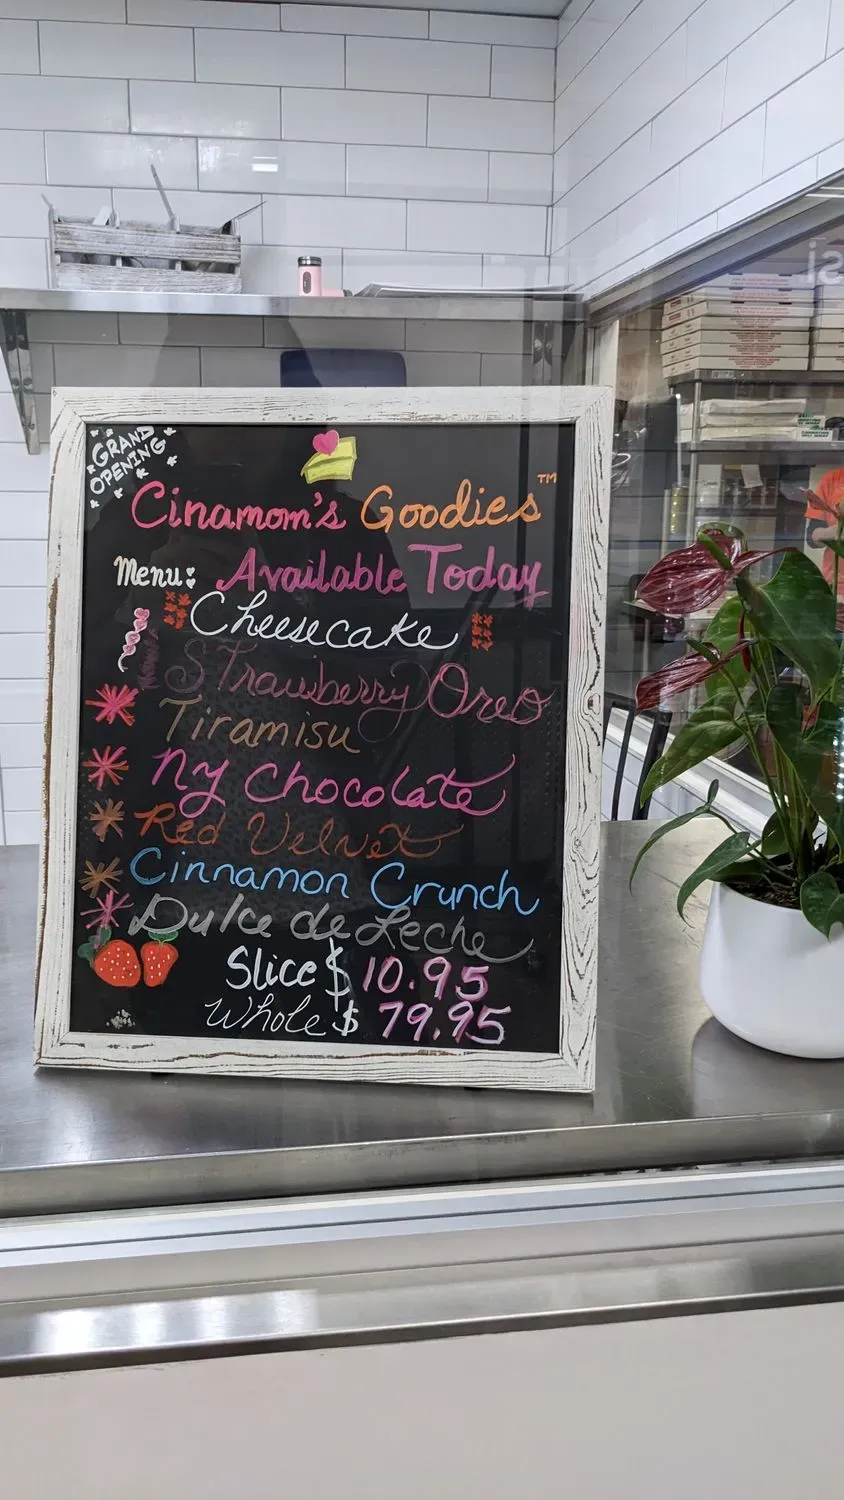 GRAND
OPENING
Cinamom's Goodies™
Menu: Available Today
Cheesecake
Strawberry Oreo
Tiramisu
NY Chocolate
Red Velvet
Cinnamon Crunch
Dulce de Leche
Slice $ 10.95
Whole $ 79.95